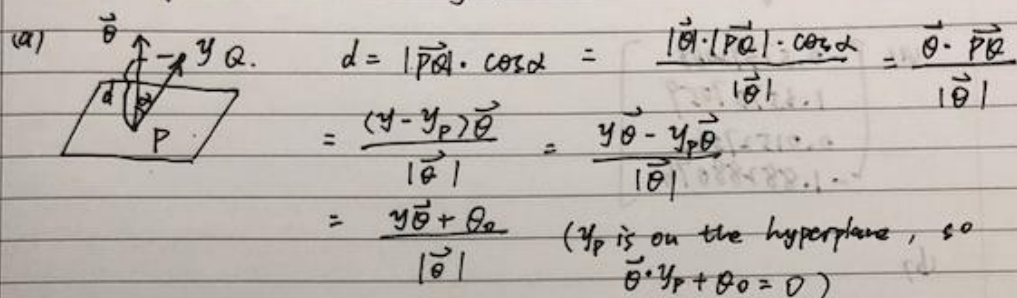 (a) θ⃗ y Q. d = |P⃗Q|· cosα = |θ⃗|·|P⃗Q|· cosα / |θ⃗| = θ⃗ · P⃗Q / |θ⃗|
d α P
= (y - y_p)θ⃗ / |θ⃗| = yθ⃗ - y_pθ⃗ / |θ⃗|
= yθ⃗ + θ₀ / |θ⃗| (y_p is on the hyperplane, so
θ⃗·y_p + θ₀ = 0)